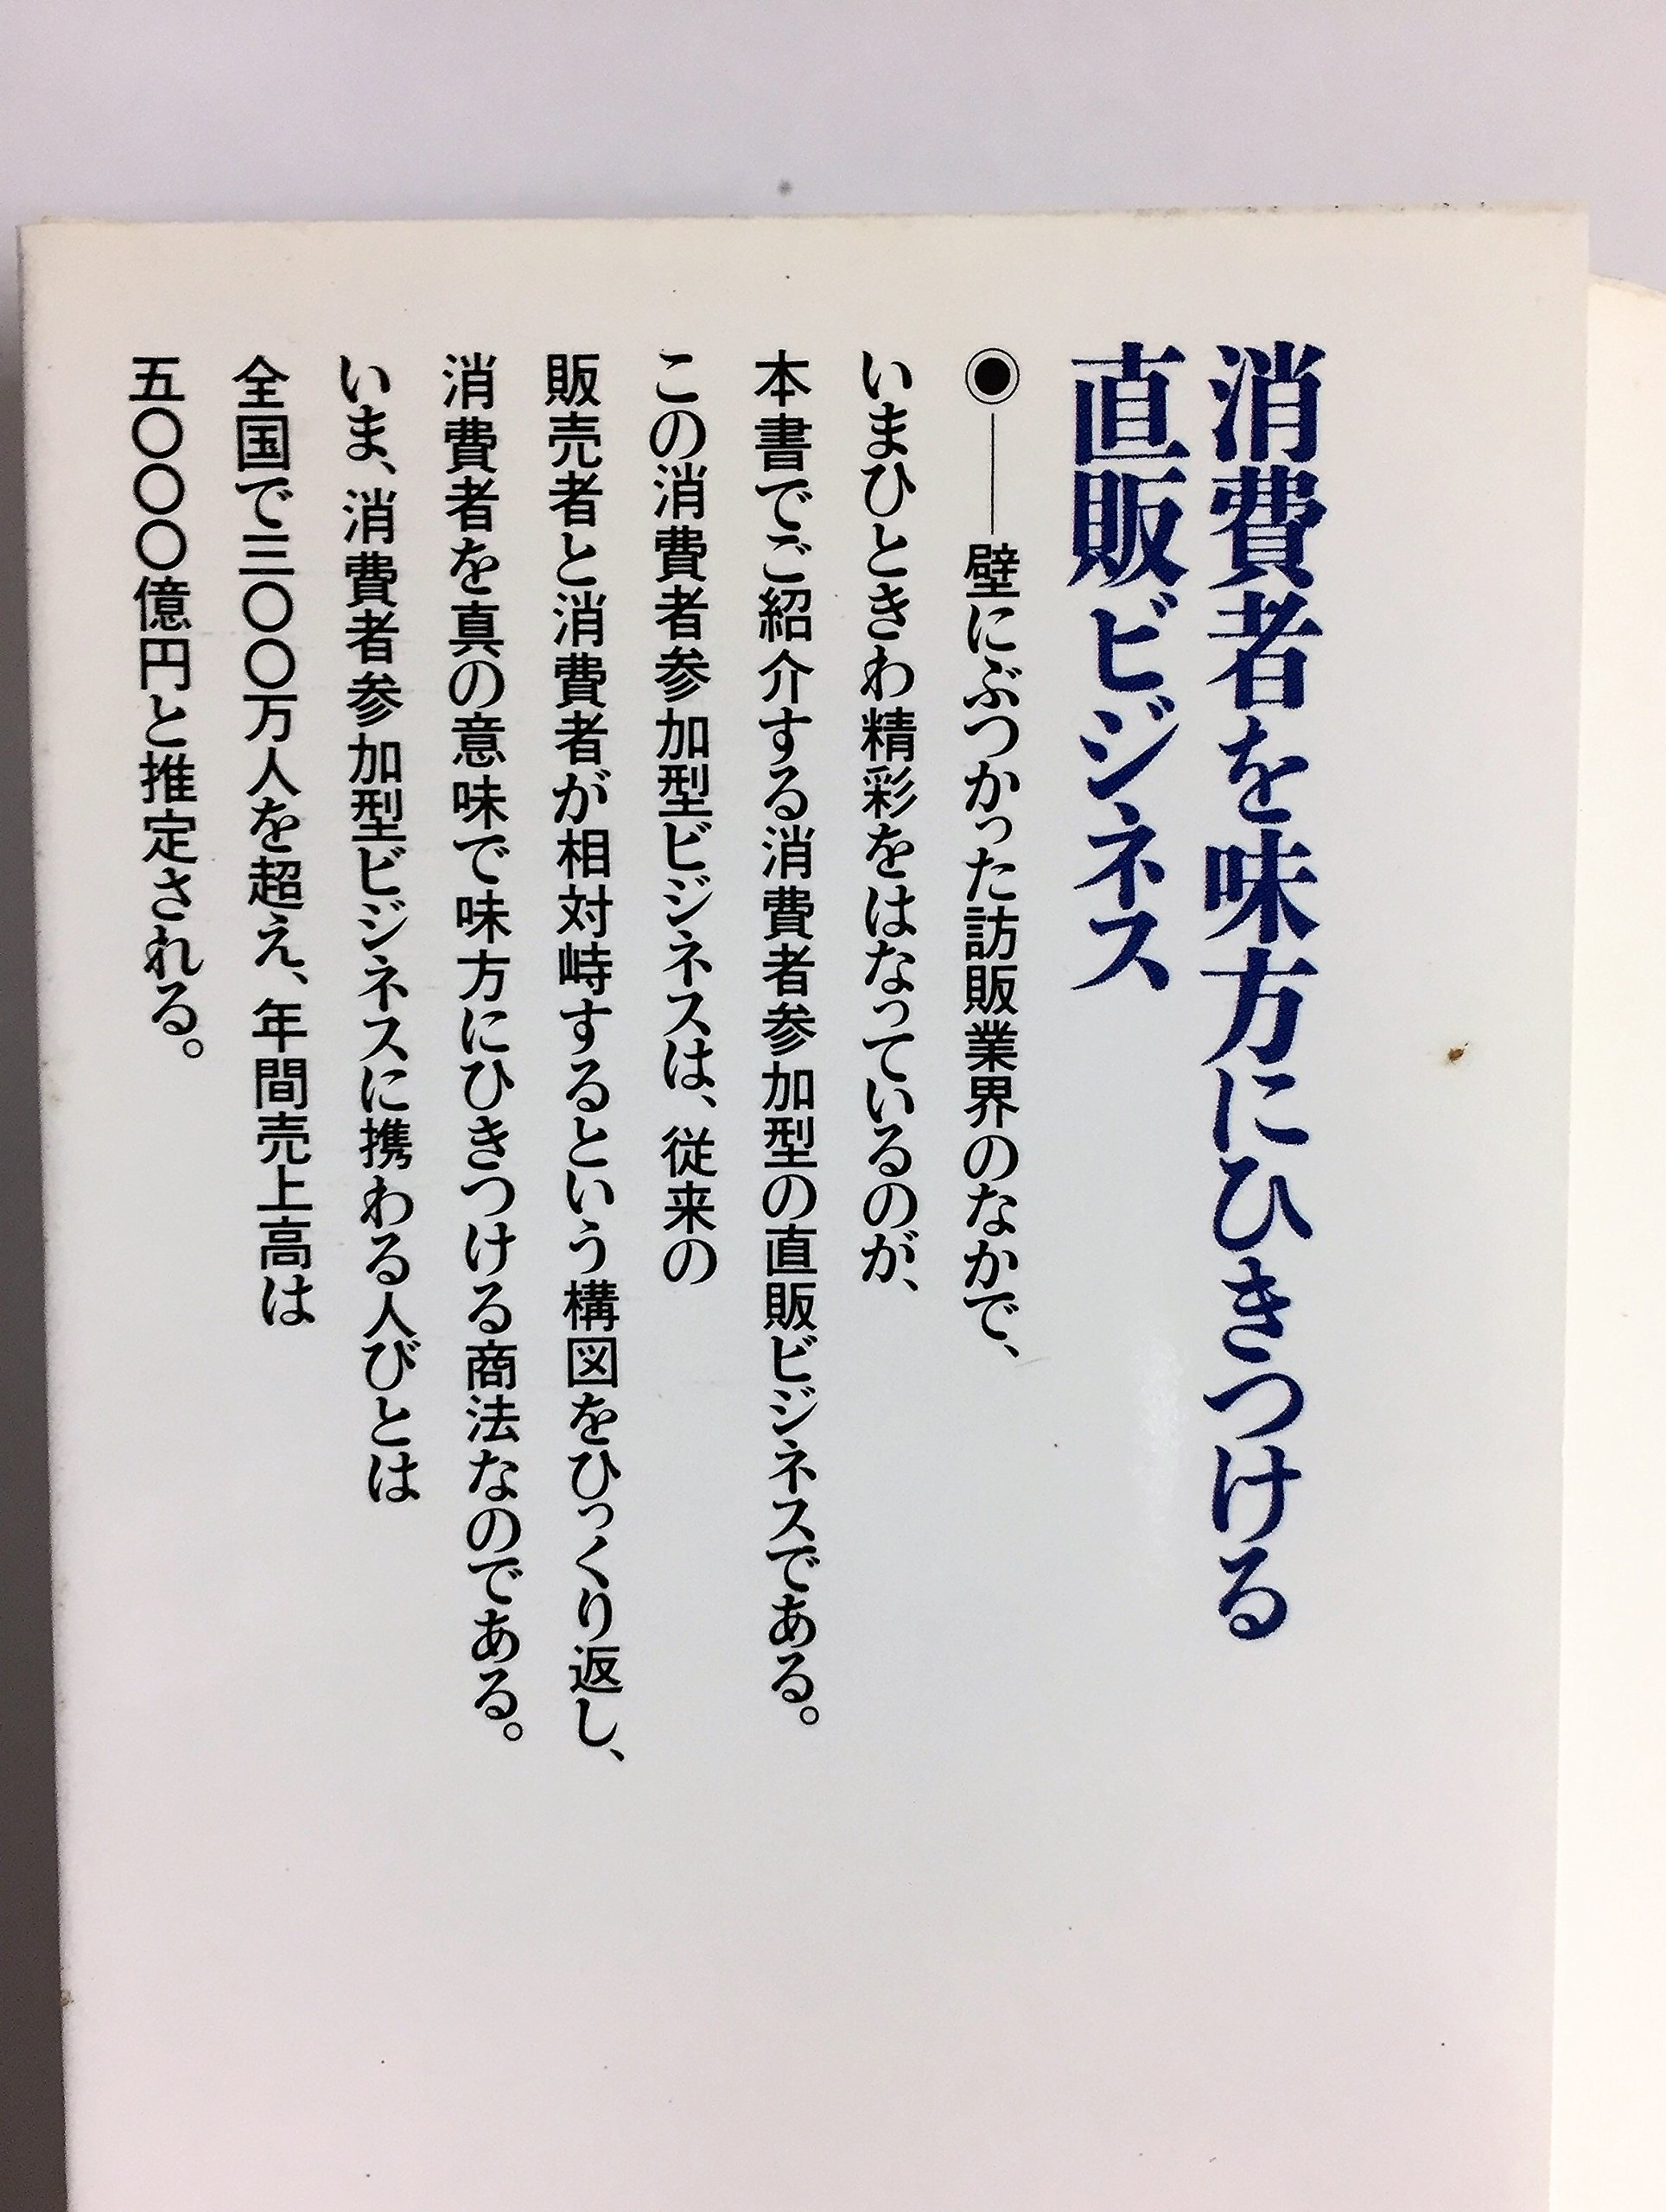 消費者を味方にひきつける
直販ビジネス
◉──壁にぶつかった訪販業界のなかで、
いまひときわ精彩をはなっているのが、
本書でご紹介する消費者参加型の直販ビジネスである。
この消費者参加型ビジネスは、従来の
販売者と消費者が相対峙するという構図をひっくり返し、
消費者を真の意味で味方にひきつける商法なのである。
いま、消費者参加型ビジネスに携わる人びとは
全国で三〇〇万人を超え、年間売上高は
五〇〇〇億円と推定される。